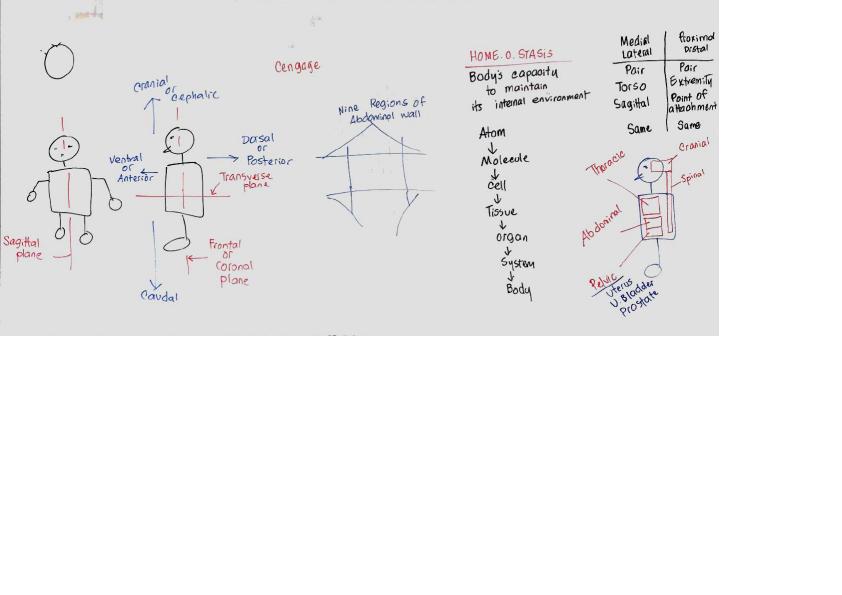 Cengage
Cranial
or
Cephalic
Ventral
or
Anterior
Dorsal
or
Posterior
Transverse
plane
Sagittal
plane
Frontal
or
Coronal
plane
Caudal
Nine Regions of
Abdominal wall
HOME.O.STASIS
Body's capacity
to maintain
its internal environment
Atom
Molecule
Cell
Tissue
organ
System
Body
Medial
Lateral
Pair
Torso
Sagittal
Same
Proximal
Distal
Pair
Extremity
Point of
attachment
Same
Thoracic
Cranial
Spinal
Abdominal
Pelvic
Uterus
U.Bladder
Prostate